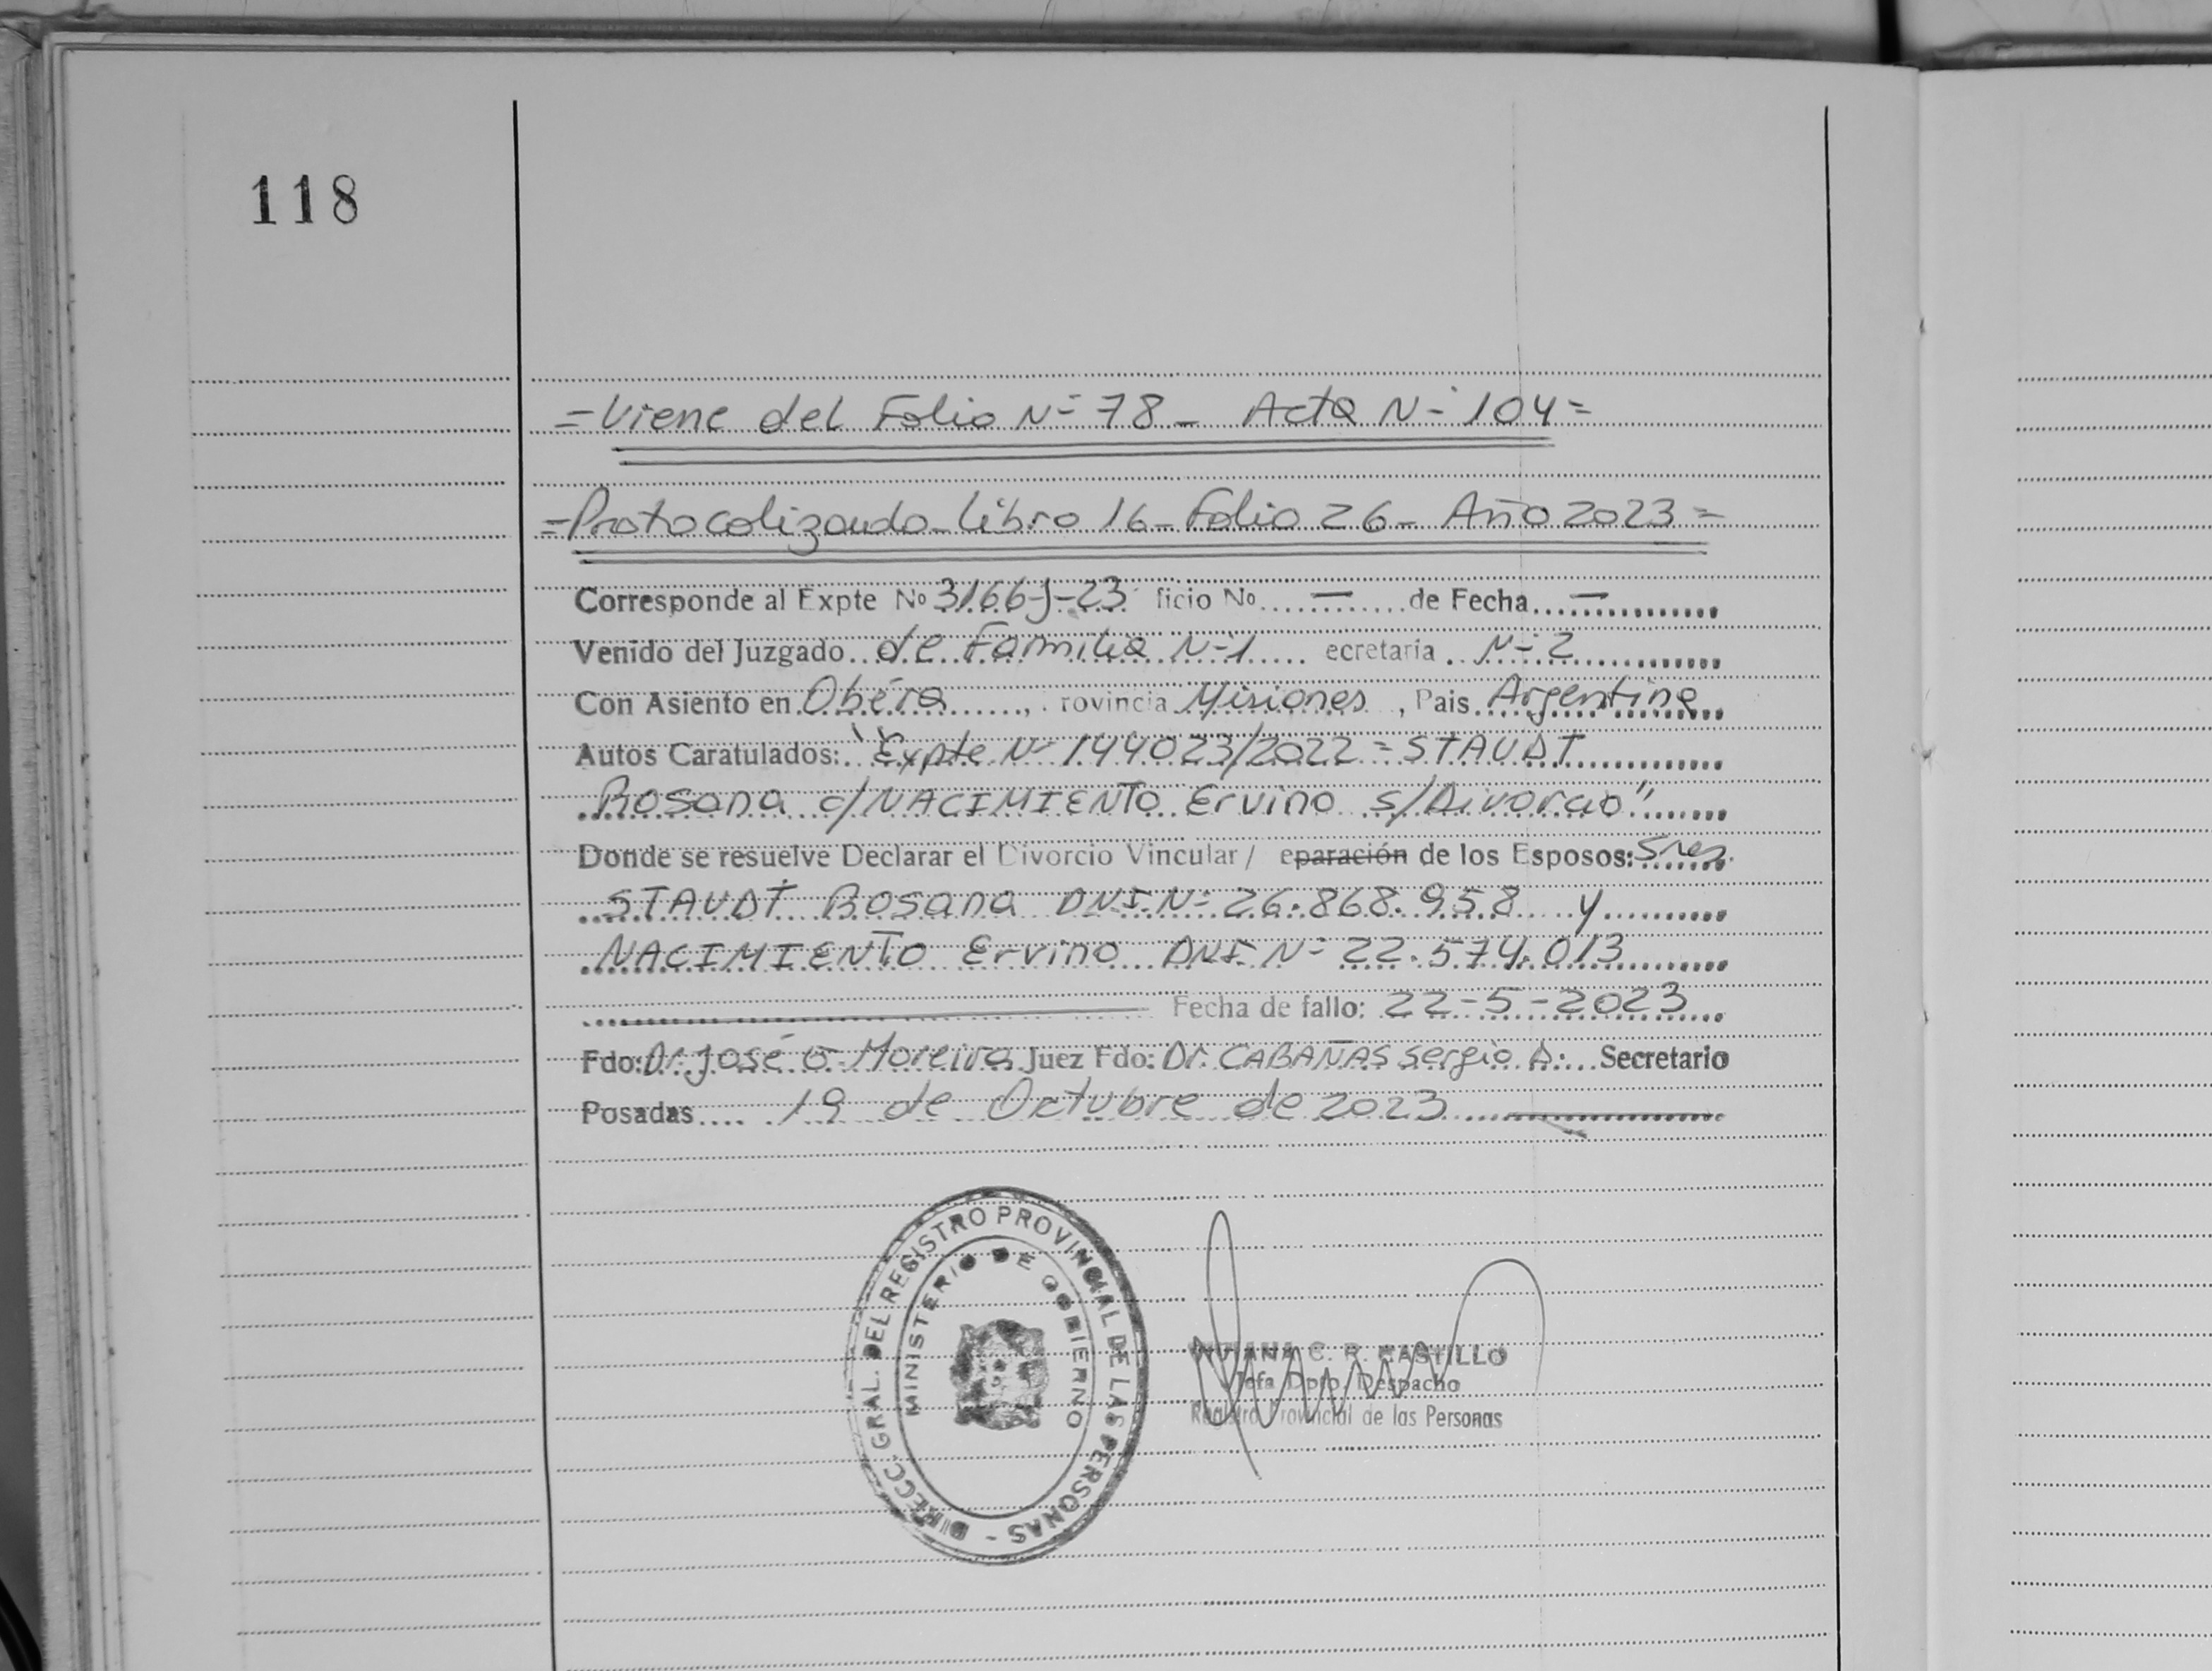 118
=Viene del Folio Nº 78 - Acta Nº 104=
=Protocolizando - Libro 16 - Folio 26 - Año 2023=
Corresponde al Expte Nº 3166-J-23 ficio No. — de Fecha —
Venido del Juzgado de Familia Nº 1 ecretaria Nº 2
Con Asiento en Oberá, rovincia Misiones, Pais Argentina
Autos Caratulados: "Expte Nº 144023/2022 = STAUDT
Rosana c/ NACIMIENTO Ervino s/Divorcio"
Donde se resuelve Declarar el Divorcio Vincular / eparación de los Esposos: Sres.
STAUDT Rosana DNI.Nº 26.868.958 y
NACIMIENTO Ervino DNI. Nº 22.574.013
Fecha de fallo: 22-5-2023
Fdo: Dr. José G. Moreira Juez Fdo: Dr. CABAÑAS Sergio A. Secretario
Posadas 19 de Octubre de 2023
DIRECC. GRAL. DEL REGISTRO PROVINCIAL DE LAS PERSONAS -
MINISTERIO DE GOBIERNO
C. R. CASTILLO
Jefa Dpto. Despacho
Registro Provincial de las Personas